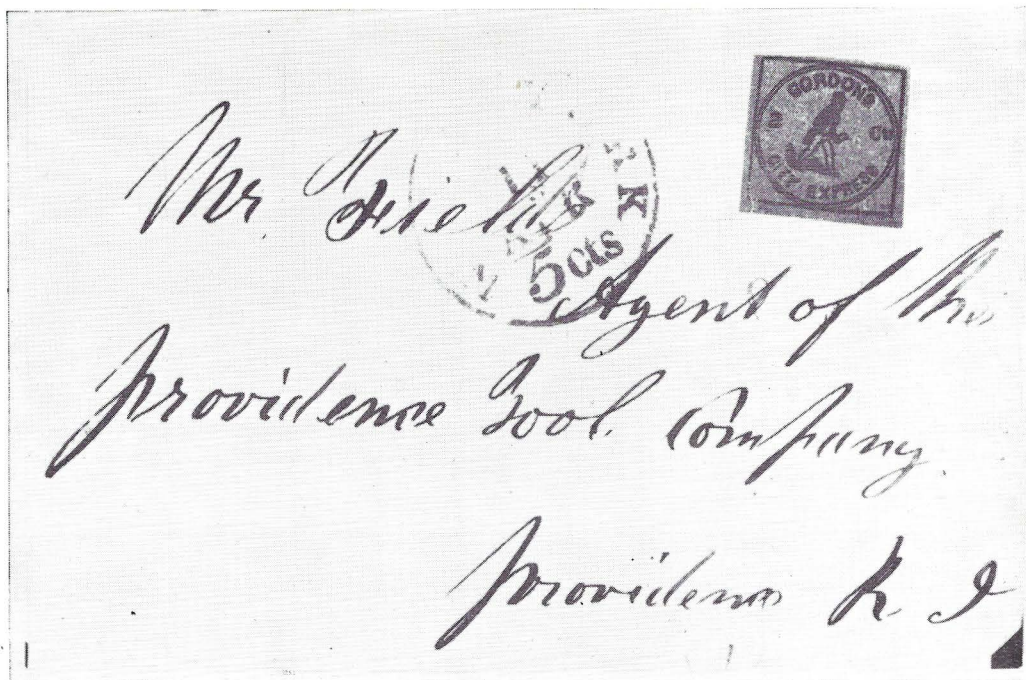 GORDON'S
2 Cts
CITY EXPRESS
5 cts
Mr Field
Agent of the
Providence Tool Company
Providence R I